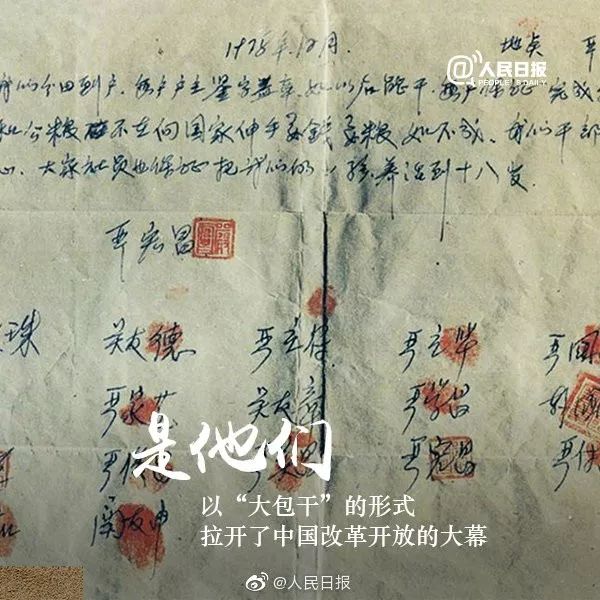 1978年12月. 地点 严
@人民日报
PEOPLE'S DAILY
我们分田到户.每户户主签字盖章.如以后能干.每户保证完成
和公粮不在向国家伸手要钱要粮如不成.我们干部
心.大家社员也保证把我们的小孩养活到十八岁.
严宏昌
珠 关友德 严立付 严立华 严国
严家芝 关友章 严学昌
严宏昌
关友申
是他们
以“大包干”的形式
拉开了中国改革开放的大幕
@人民日报